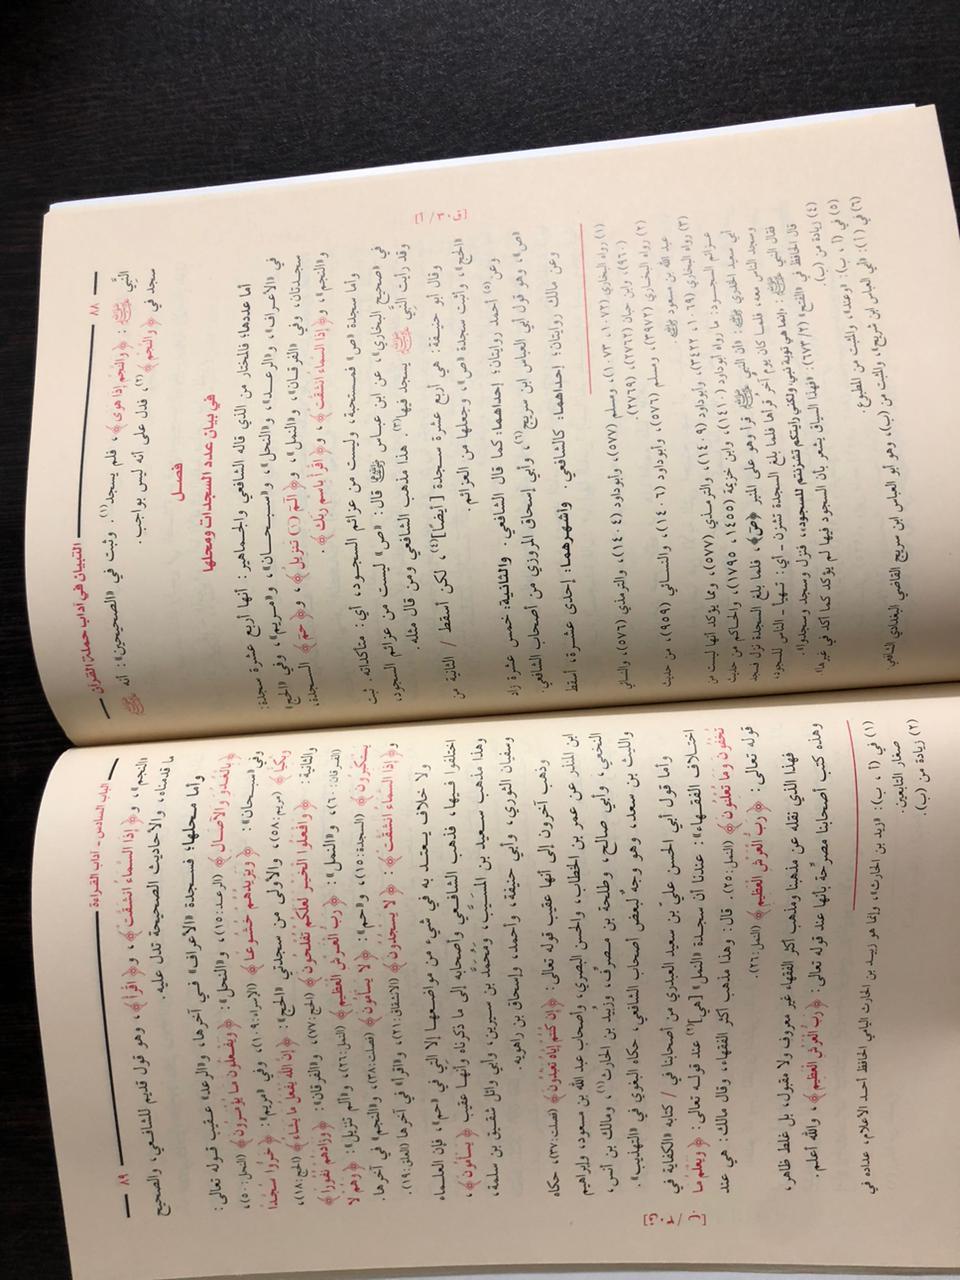 ٨٨
التبيان في آداب حملة القرآن
النَّبِي ﷺ: ﴿وَالنَّجْمِ إِذَا هَوَى﴾، فلم يسجد(١). وثبت في «الصحيحين»: أنه ﷺ
سجد في ﴿وَالنَّجْمِ﴾(٢)، فدل على أنه ليس بواجب.
فصل
في بيان عدد السجدات ومحلها
أما عددها؛ فالمختار من الذي قاله الشافعي والجماهير: أنها أربع عشرة سجدة:
في «الأعراف»، و«الرعد»، و«النحل»، و«سبحان»، و«مريم»، وفي «الحج»
سجدتان، وفي «الفرقان»، و«النمل»، و﴿الم (١) تنزيل﴾، و﴿حم﴾ السجدة،
و«النجم»، و﴿إِذَا السَّمَاءُ انشَقَّتْ﴾، و﴿اقْرَأْ بِاسْمِ رَبِّكَ﴾.
وأما سجدة «ص» فمستحبة، وليست من عزائم السجود، أي: متأكداته. ثبت
في «صحيح البخاري»، عن ابن عباس قال: «ص» ليست من عزائم السجود،
وقد رأيت النَّبي ﷺ يسجد فيها(٣). هذا مذهب الشافعي ومن قال مثله.
وقال أبو حنيفة: هي أربع عشرة سجدة [أيضاً](٤)، لكن أسقط / الثانية من
[ق٣٠/ أ]
«الحج»، وأثبت سجدة «ص»، وجعلها من العزائم.
وعن(٥) أحمد روايتان؛ إحداهما: كما قال الشافعي. والثانية: خمس عشرة زاد
«ص»، وهو قول أبي العباس ابن سريج(٦)، وأبي إسحاق المروزي من أصحاب الشافعي.
وعن مالك روايتان؛ إحداهما: كالشافعي. وأشهرهما: إحدى عشرة، أسقط
(١) رواه البخاري (١٠٧٢، ١٠٧٣)، ومسلم (٥٧٧)، وأبو داود (١٤٠٤)، والترمذي (٥٧٦)، والنسائي
(٩٦٠)، وابن حبان (٢٧٦٢، ٢٧٦٩).
(٢) رواه البخاري (٣٩٧٢)، ومسلم (٥٧٦)، وأبو داود (١٤٠٦)، والنسائي (٩٥٩)، من حديث
عبد الله بن مسعود
(٣) رواه البخاري (١٠٦٩، ٣٤٢٢)، وأبو داود (١٤٠٩)، والترمذي (٥٧٧)، ومما يؤكد أنها ليست من
عزائم السجود: ما رواه أبو داود (١٤١٠)، وابن خزيمة (١٤٥٥، ١٧٩٥)، والحاكم من حديث
أبي سعيد الخدري: «أن النبي ﷺ قرأ وهو على المنبر ﴿ص﴾، فلما بلغ السجدة نزل فسجد
وسجد الناس معه، فلما كان يوم آخر قرأها فلما بلغ السجدة تشزن ـ أي: تهيأ ـ الناس للسجود،
فقال النبي ﷺ: «إنما هي توبة نبي، ولكني رأيتكم تشزنتم للسجود»، فنزل وسجد وسجدوا».
قال الحافظ في «الفتح» (٢/ ٦٧٣): «فهذا السياق يشعر بأن السجود فيها لم يؤكد كما أكد في غيرها».
(٤) زيادة من (ب).
(٥) في (أ، ب): «وعند»، والمثبت من المطبوع.
(٦) في (أ): «أبي العباس بن شريح»، والمثبت من (ب)، وهو أبو العباس ابن سريج القاضي البغدادي الشافعي.
الباب السادس - آداب القراءة
٨٩
«النجم»، و﴿إِذَا السَّمَاءُ انشَقَّتْ﴾، و﴿اقْرَأْ﴾، وهو قول قديم للشافعي، والصحيح
ما قدمناه، والأحاديث الصحيحة تدل عليه.
وأما محلها؛ فسجدة «الأعراف» في آخرها، و«الرعد» عقيب قوله تعالى:
﴿بِالْغُدُوِّ وَالْآصَالِ﴾ (الرعد:١٥)، و«النحل»: ﴿وَيَفْعَلُونَ مَا يُؤْمَرُونَ﴾ (النحل:٥٠)،
وفي «سبحان»: ﴿وَيَزِيدُهُمْ خُشُوعًا﴾ (الإسراء:١٠٩)، وفي «مريم»: ﴿خَرُّوا سُجَّدًا
وَبُكِيًّا﴾ (مريم:٥٨)، والأولى من سجدتي «الحج»: ﴿إِنَّ اللَّهَ يَفْعَلُ مَا يَشَاءُ﴾ (الحج:١٨)،
والثانية: ﴿وَافْعَلُوا الْخَيْرَ لَعَلَّكُمْ تُفْلِحُونَ﴾ (الحج:٧٧)، و«الفرقان»: ﴿وَزَادَهُمْ نُفُورًا﴾
(الفرقان:٦٠)، و«النمل»: ﴿رَبُّ الْعَرْشِ الْعَظِيمِ﴾ (النمل:٢٦)، و«الم تنزيل»: ﴿وَهُمْ لَا
يَسْتَكْبِرُونَ﴾ (السجدة:١٥)، و«حم»: ﴿لَا يَسْأَمُونَ﴾ (فصلت:٣٨)، و«النجم» في آخرها.
و﴿إِذَا السَّمَاءُ انشَقَّتْ﴾: ﴿لَا يَسْجُدُونَ﴾ (الانشقاق:٢١)، و«اقرأ» في آخرها (العلق:١٩).
ولا خلاف يعتد به في شيء من مواضعها إلا التي في «حم»، فإن العلماء
اختلفوا فيها، فذهب الشافعي وأصحابه إلى ما ذكرناه وأنها عقيب ﴿يَسْأَمُونَ﴾،
وهذا مذهب سعيد بن المسيَّب، ومحمد بن سيرين، وأبي وائل شقيق بن سلمة،
وسفيان الثوري، وأبي حنيفة، وأحمد، وإسحاق بن راهويه.
وذهب آخرون إلى أنها عقيب قوله تعالى: ﴿إِن كُنتُمْ إِيَّاهُ تَعْبُدُونَ﴾ (فصلت:٣٧)، حكاه
ابن المنذر عن عمر بن الخطاب، والحسن البصري، وأصحاب عبد الله بن مسعود، وإبراهيم
النخعي، وأبي صالح، وطلحة بن مصرِّف، وزُبيد بن الحارث(١)، ومالك بن أنس،
والليث بن سعد، وهو وجهٌ لبعض أصحاب الشافعي، حكاه البغوي في «التهذيب».
وأما قول أبي الحسن عليّ بن سعيد العبدري من أصحابنا في / كتابه «الكفاية في
[ق٣٠/ ب]
اختلاف الفقهاء»: عندنا أن سجدة «النمل» [هي](٢) عند قوله تعالى: ﴿وَيَعْلَمُ مَا
تُخْفُونَ وَمَا تُعْلِنُونَ﴾ (النمل:٢٥). قال: وهذا مذهب أكثر الفقهاء، وقال مالك: هي عند
قوله تعالى: ﴿رَبُّ الْعَرْشِ الْعَظِيمِ﴾ (النمل:٢٦).
فهذا الذي نقله عن مذهبنا ومذهب أكثر الفقهاء غير معروف ولا مقبول، بل غلط ظاهر،
وهذه كتب أصحابنا مصرِّحة بأنها عند قوله تعالى: ﴿رَبُّ الْعَرْشِ الْعَظِيمِ﴾، والله أعلم.
(١) في (أ، ب): «زيد بن الحارث»، وإنما هو زبيد بن الحارث اليامي الحافظ أحد الأعلام، عداده في
صغار التابعين.
(٢) زيادة من (ب).